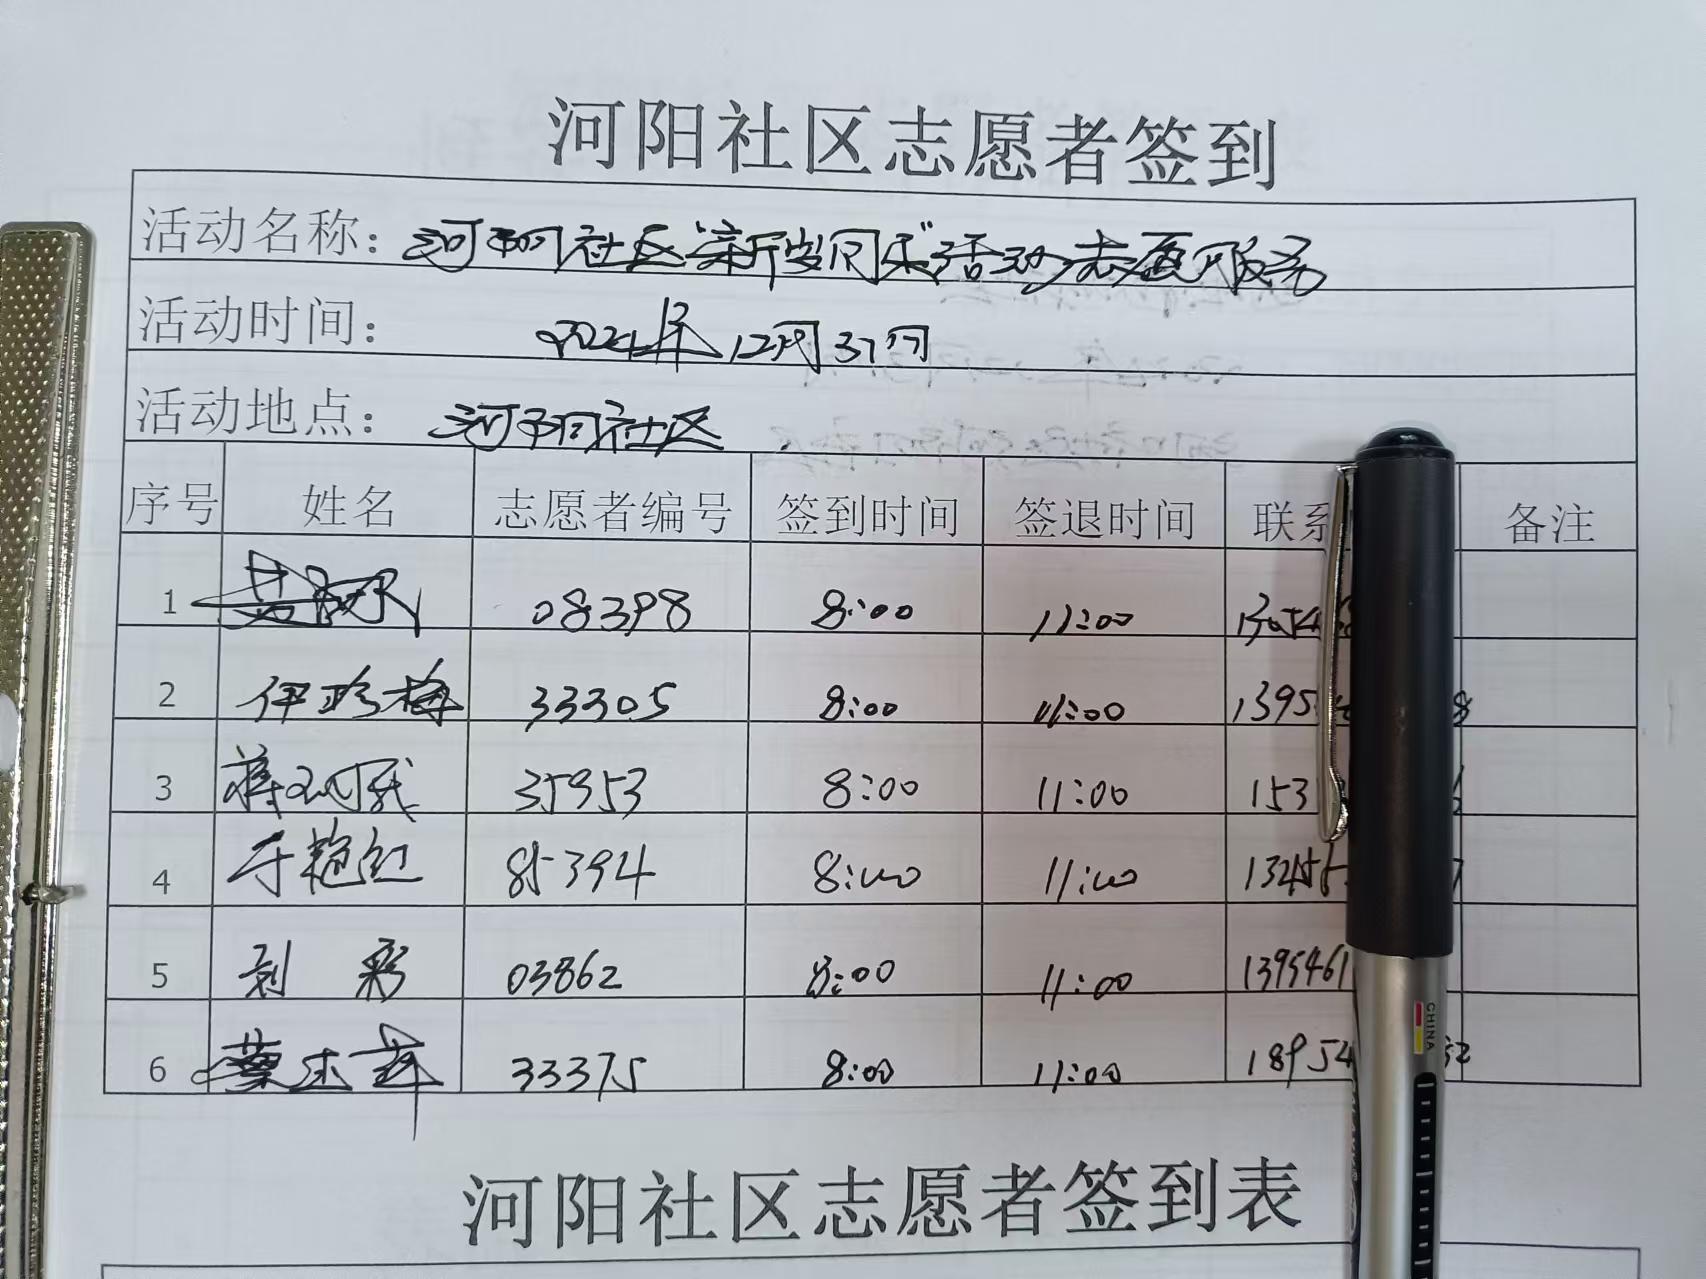 河阳社区志愿者签到
活动名称：河阳社区"新岁同乐"活动志愿服务
活动时间：2024年12月31日
活动地点：河阳社区
序号 姓名 志愿者编号 签到时间 签退时间 联系 备注
1 08398 8:00 11:00
2 伊珍梅 33305 8:00 11:00 1395 8
3 35953 8:00 11:00 153
4 于艳红 85394 8:00 11:00
5 刘彩 03862 8:00 11:00 1395461
6 33375 8:00 11:00 18954 52
CHINA
河阳社区志愿者签到表